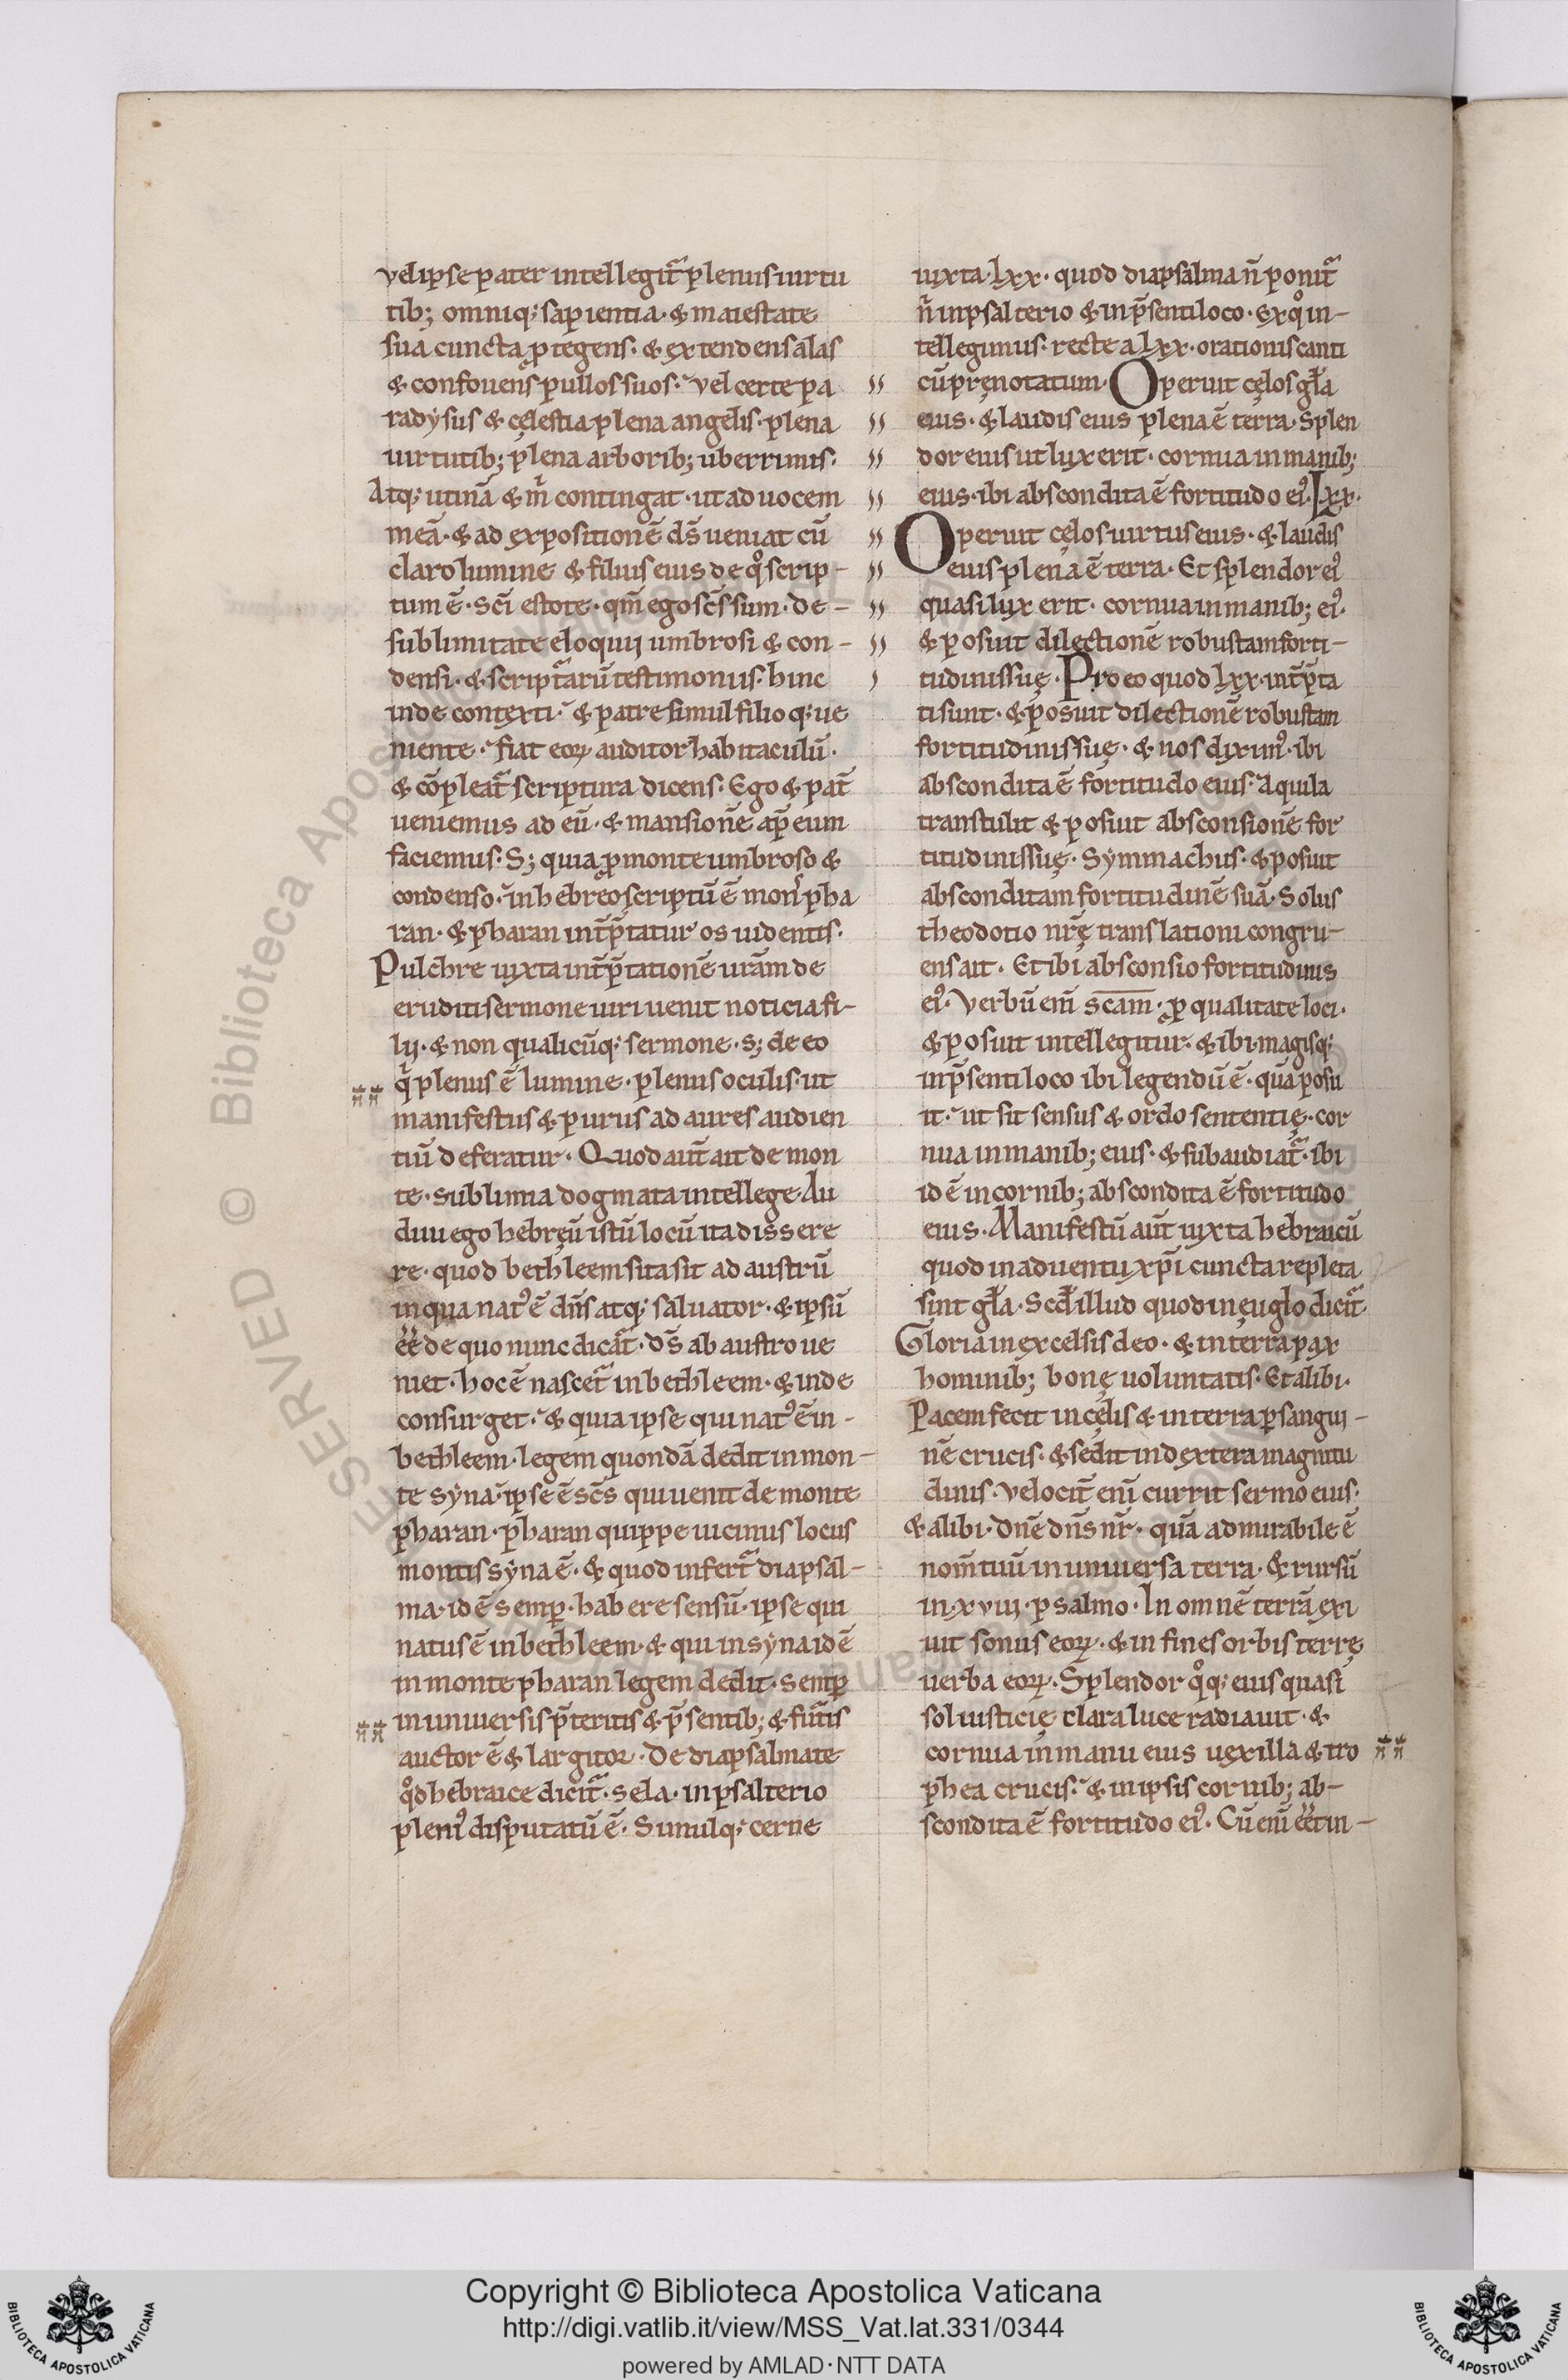 vel ipse pater intellegit᷑ plenus uirtu
tib; omniq; sapientia· & maiestate
sua cuncta ꝓtegens· & extendens alas
& confouens pullos suos· vel certe pa
radysus & cęlestia plena angelis· plena
uirtutib; plena arborib; uberrimis·
Atq; utinā & m̊ contingat· ut ad uocem
meā· & ad expositionē ds̄ ueniat cū
claro lumine & filius eius de qͦ scrip-
tum ē· sc̄i estote· qm̄ ego sc̄s sum· de-
sublimitate eloquij umbrosi & con-
densi· & script᷑arū testimoniis· hinc
inde contexti· & patre simul filioq; ue
niente· fiat eoꝝ auditor habitaculū·
& cōpleat᷑ scriptura dicens· Ego & pat̄
ueniemus ad eū· & mansionē ap̄ eum
faciemus· S; quia ꝓ monte umbroso &
condenso· in hebreo scriptū ē mons pha
ran· & pharan int̄p̄tatur os uidentis·
Pulchre iuxta int̄p̄tationē urām de
eruditi sermone uiri uenit noticia fi-
lij· & non qualicūq; sermone· s; de eo
q̇ plenus ē lumine· plenus oculis· ut
manifestus & purus ad aures audien
tiū deferatur· Quod aut̄ ait de mon
te· sublimia dogmata intellege· Au
diui ego hebręū istū locū ita dissere
re· quod bethleem sita sit ad austrū
in qua natꝰ ē dn̄s atq; saluator· & ipsū
ēē de quo nunc dicat᷑· ds̄ ab austro ue
niet· hoc ē nascet᷑ in bethleem· & inde
consurget· & quia ipse qui natꝰ ē in-
bethleem· legem quondā dedit in mon-
te syna· ipse ē sc̄s qui uenit de monte
pharan· pharan quippe uicinus locus
montis syna ē· & quod infert᷑ diapsal-
ma· id ē semꝑ· habere sensū· ipse qui
natus ē in bethleem· & qui in syna id ē
in monte pharan legem dedit· semꝑ
in uniuersis p̄teritis & p̄sentib; & fut᷑is
auctor ē & largitor· De diapsalmate
qͦd hebraice dicit᷑· sela· in psalterio
pleniꝰ disputatū ē· Simulq; cerne
iuxta· lxx· quod diapsalma n̄ ponit᷑
n̊ in psalterio & in p̄senti loco· ex qͦ in-
tellegimus· recte a lxx· orationis canti
cū pręnotatum· Operuit cęlos gła
eius· & laudis eius plena ē terra· Splen
dor eius ut lux erit· cornua in manib;
eius· ibi abscondita ē fortitudo eiꝰ· Lxx·
Operuit cęlos uirtus eius· & laudis
eius plena ē terra· Et splendor eiꝰ
quasi lux erit· cornua in manib; eiꝰ·
& posuit dilectionē robustam forti-
tudinis suę· Pro eo quod lxx· int̄p̄ta
ti sunt· & posuit dilectionē robustam
fortitudinis suę· & nos diximꝰ· ibi
abscondita ē fortitudo eius· Aquila
transtulit & posuit absconsionē for
titudinis suę· Symmachus· & posuit
absconditam fortitudinē suā· Solus
theodotio nrę̄ translationi congru-
ens ait· Et ibi absconsio fortitudinis
eiꝰ· Verbū em̄ scam· ꝓ qualitate loci·
& posuit intellegitur· & ibi· magisq;
in p̄senti loco ibi legendū ē· quā posu
it· ut sit sensus & ordo sententię· cor
nua in manib; eius· & subaudiat᷑· ibi
id ē in cornib; abscondita ē fortitudo
eius· Manifestū aut̄ iuxta hebraicū
quod in aduentu xp̄i cuncta repleta
sint gła· Scd̄ illud quod in euglo dicit᷑
Gloria in excelsis deo· & in terra pax
hominib; bonę uoluntatis· Et alibi·
Pacem fecit in cęlis & in terra ꝑ sangui-
nē crucis· & sedit in dextera magnitu
dinis· Velocit̄ enī currit sermo eius·
& alibi· Dn̄e dn̄s nr̄· quā admirabile ē
nom̄ tuū in uniuersa terra· & rursū
in xviij· psalmo· In omnē terrā exi
uit sonus eoꝝ· & in fines orbis terrę
uerba eoꝝ· Splendor qͦq; eius quasi
sol iusticię clara luce radiauit· &
cornua in manu eius uexilla & tro
phea crucis· & in ipsis cornib; ab-
scondita ē fortitudo eiꝰ· Cū enī ēēt in-
Copyright © Biblioteca Apostolica Vaticana
http://digi.vatlib.it/view/MSS_Vat.lat.331/0344
powered by AMLAD·NTT DATA